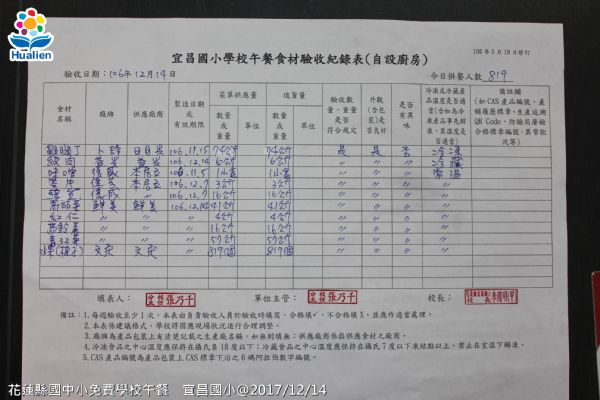 Hualien
106年5月18日修訂
宜昌國小學校午餐食材驗收紀錄表(自設廚房)
驗收日期：106年12月14日
今日供餐人數 819
食材名稱 廠牌 供應廠商 製造日期或有效期限 菜單供應量 進貨量 驗收數量、重量是否符合規定 外觀(含包裝)是否良好 是否有異味 冷凍或冷藏產品溫度是否適當(含如為冷凍產品事先解凍，其溫度是否適當) 備註欄(如CAS產品編號、產銷履歷標章、生產追溯QR Code、防檢局屠檢合格標章編號、異常狀況等)
數量或重量 單位 數量或重量 單位
卜蜂 106.11.15 74公斤 74公斤 是 是 否 冷凍
絞肉 106.12.14 6公斤 6公斤 〃 〃 〃 冷藏
味噌 〃 〃 〃 常溫
106.12.7 3公斤 3公斤 〃 〃 〃 〃
106.12.7 16公斤 16公斤 〃 〃 〃 〃
高麗菜 鮮美 鮮美 106.12.14 41公斤 41公斤 〃 〃 〃 〃
紅仁 〃 〃 〃 4公斤 4公斤 〃 〃 〃 〃
〃 〃 〃 16公斤 16公斤 〃 〃 〃 〃
〃 〃 〃 57公斤 57公斤 〃 〃 〃 〃
819個 819個 〃 〃 〃
填表人： 張乃千 單位主管： 張乃千 校長：
備註：1.每週驗收至少1次，本表由負責驗收人員於驗收時填寫，合格填✓，不合格填X，並應作適當處理。
2.本表係建議格式，學校得因應現場狀況進行合理調整。
3.廠牌為產品包裝上有清楚記載之生產廠商名稱，如無則填無；供應廠商係指供應食材之廠商。
4.冷凍食品之中心溫度應保持在攝氏負18度以下；冷藏食品之中心溫度應保持在攝氏7度以下凍結點以上，禁止在室溫下解凍。
5.CAS產品編號為產品包裝上CAS標章下沿之6碼阿拉伯數字編號。
花蓮縣國中小免費學校午餐 宜昌國小@2017/12/14